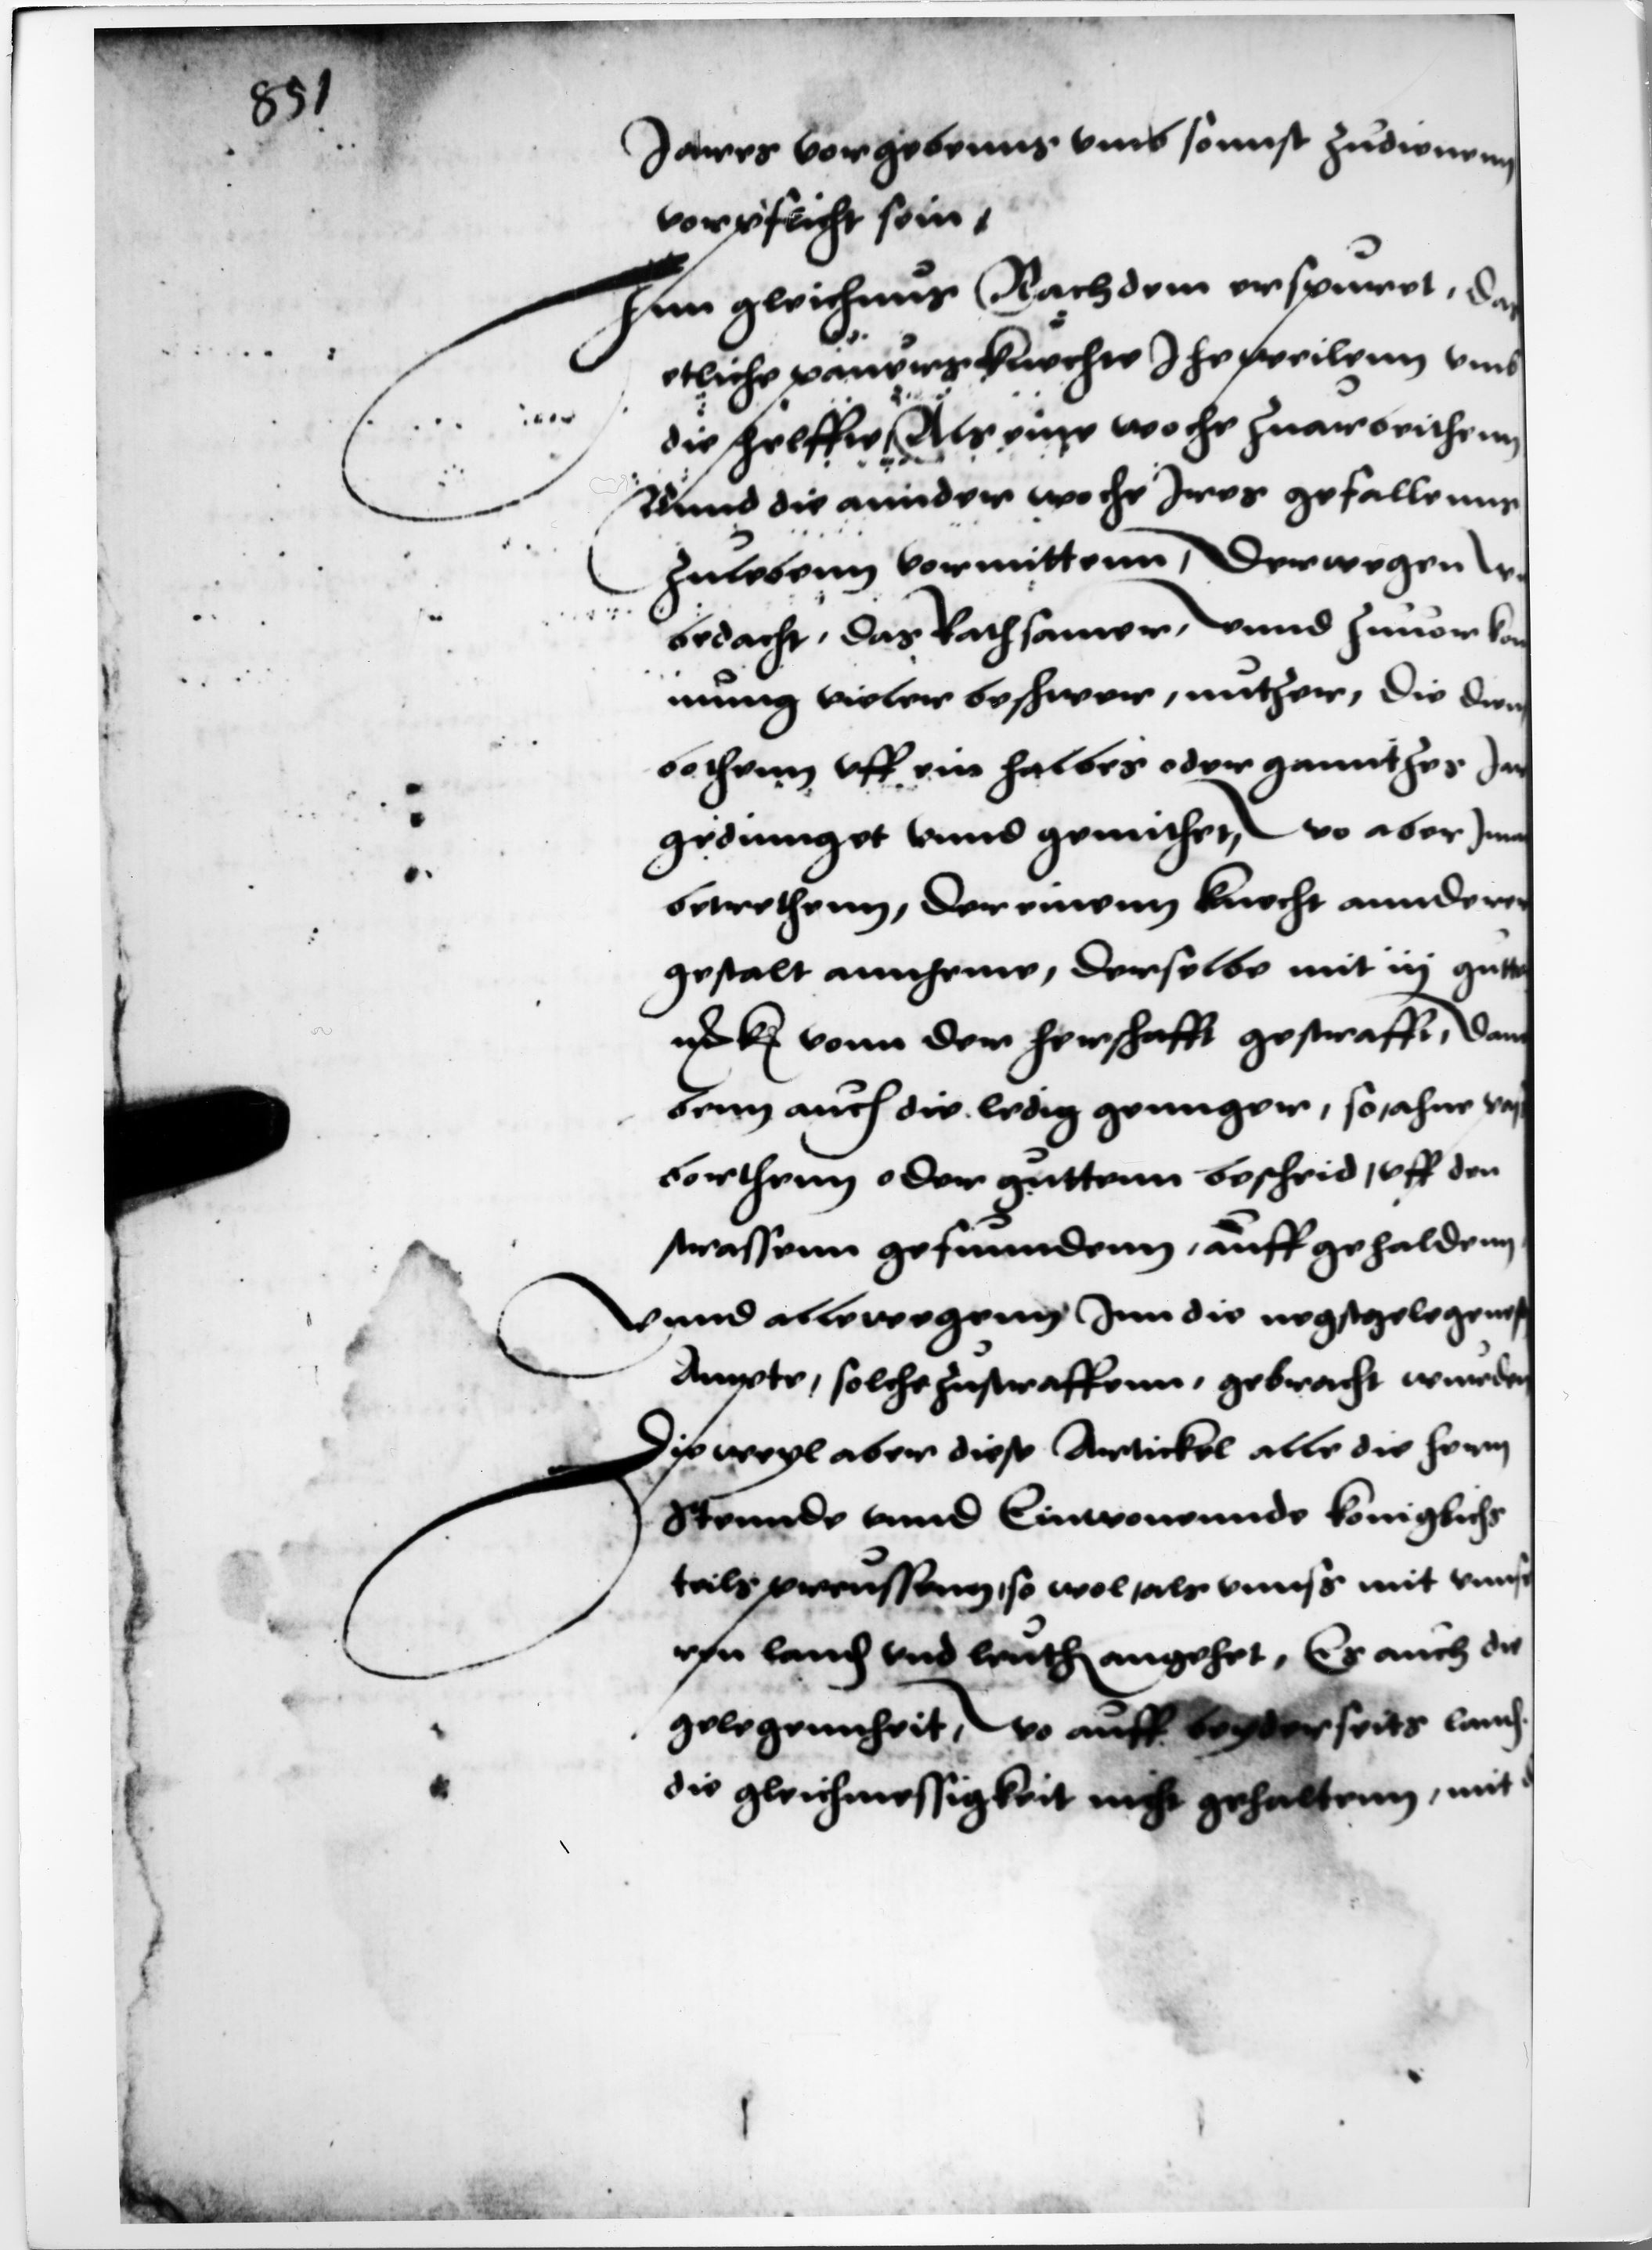 851
Jares vorgebenns umb sonnst zudienenn
vorpflicht sein,
Inn gleichnus Nachdem erspuret, das
etliche paurs knechte Jhe weilenn umb
die helffte, Als eine woche zuarbeithenn
Unnd die annder woche Jres gefallenns
zulebenn vormittenn, Derwegen
bedacht, das Rathsamer, unnd zuuor kom
mung vieler beschwer, nutzer, die dien
bothenn uff ein halbes oder ganntzes Jar
gedinnget unnd gemithet, wo aber
betrethenn, der einenn knecht annderer
gestalt annheme, derselbe mit iij gutte
vonn der herschafft gestrafft,
benn auch die ledig gennger, so ahne
borthenn oder guttenn bescheid, uff den
strassenn gefunndenn, auff gehaldenn
unnd allewegenn Inn die negstgelegenest
Ampte, solche zustraffenn, gebracht wurden
Die weyl aber diese Artickel alle die hern
Stennde unnd Einwonennde koniglichs
teils preussenn, so wol, als unnss mit unnse
ren land und leuth angehet, Es auch die
gelegennheit, wo auff beyderseits land
die gleichmessigkeit nicht gehaltenn, mit